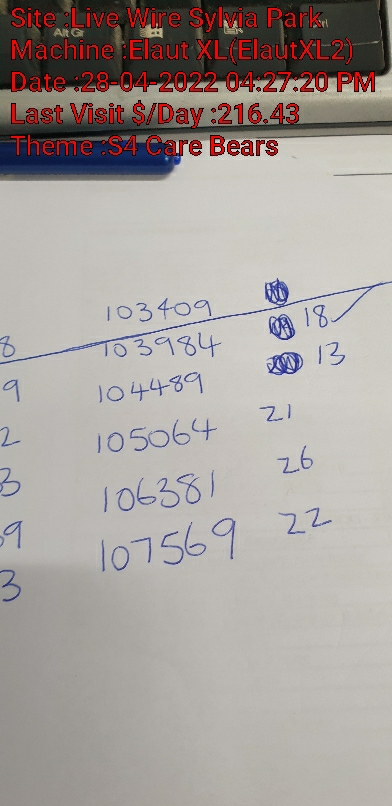 Site :Live Wire Sylvia Park
Machine :Elaut XL(ElautXL2)
Date :28-04-2022 04:27:20 PM
Last Visit $/Day :216.43
Theme :S4 Care Bears
Alt Gr
103409
8 103984 18
9 104489 13
2 105064 21
3 106381 26
9 107569 22
3